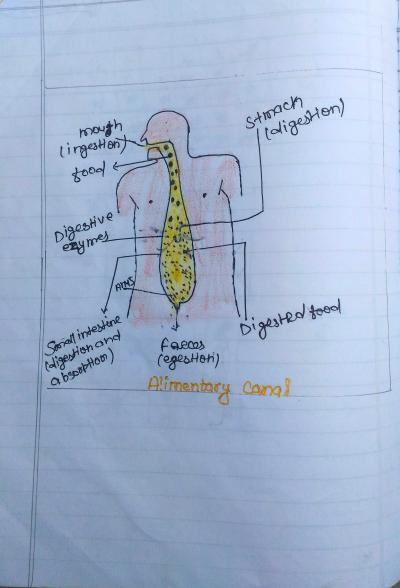 mouth
(ingestion)
food
Stmach
(digestion)
Digestive
enzymes
Anus
Small intestine
(digestion and
absorption)
Faeces
(egestion)
Digested food
Alimentary Canal